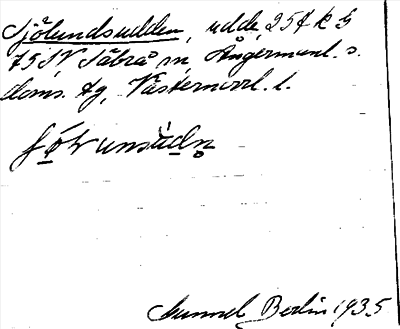 Sjölundsudden, udde, 254 k G
75 SV Säbrå sn, Ångermanl. s.
doms. tg, Västernorrl. l.
Gunnel Berlin 1935